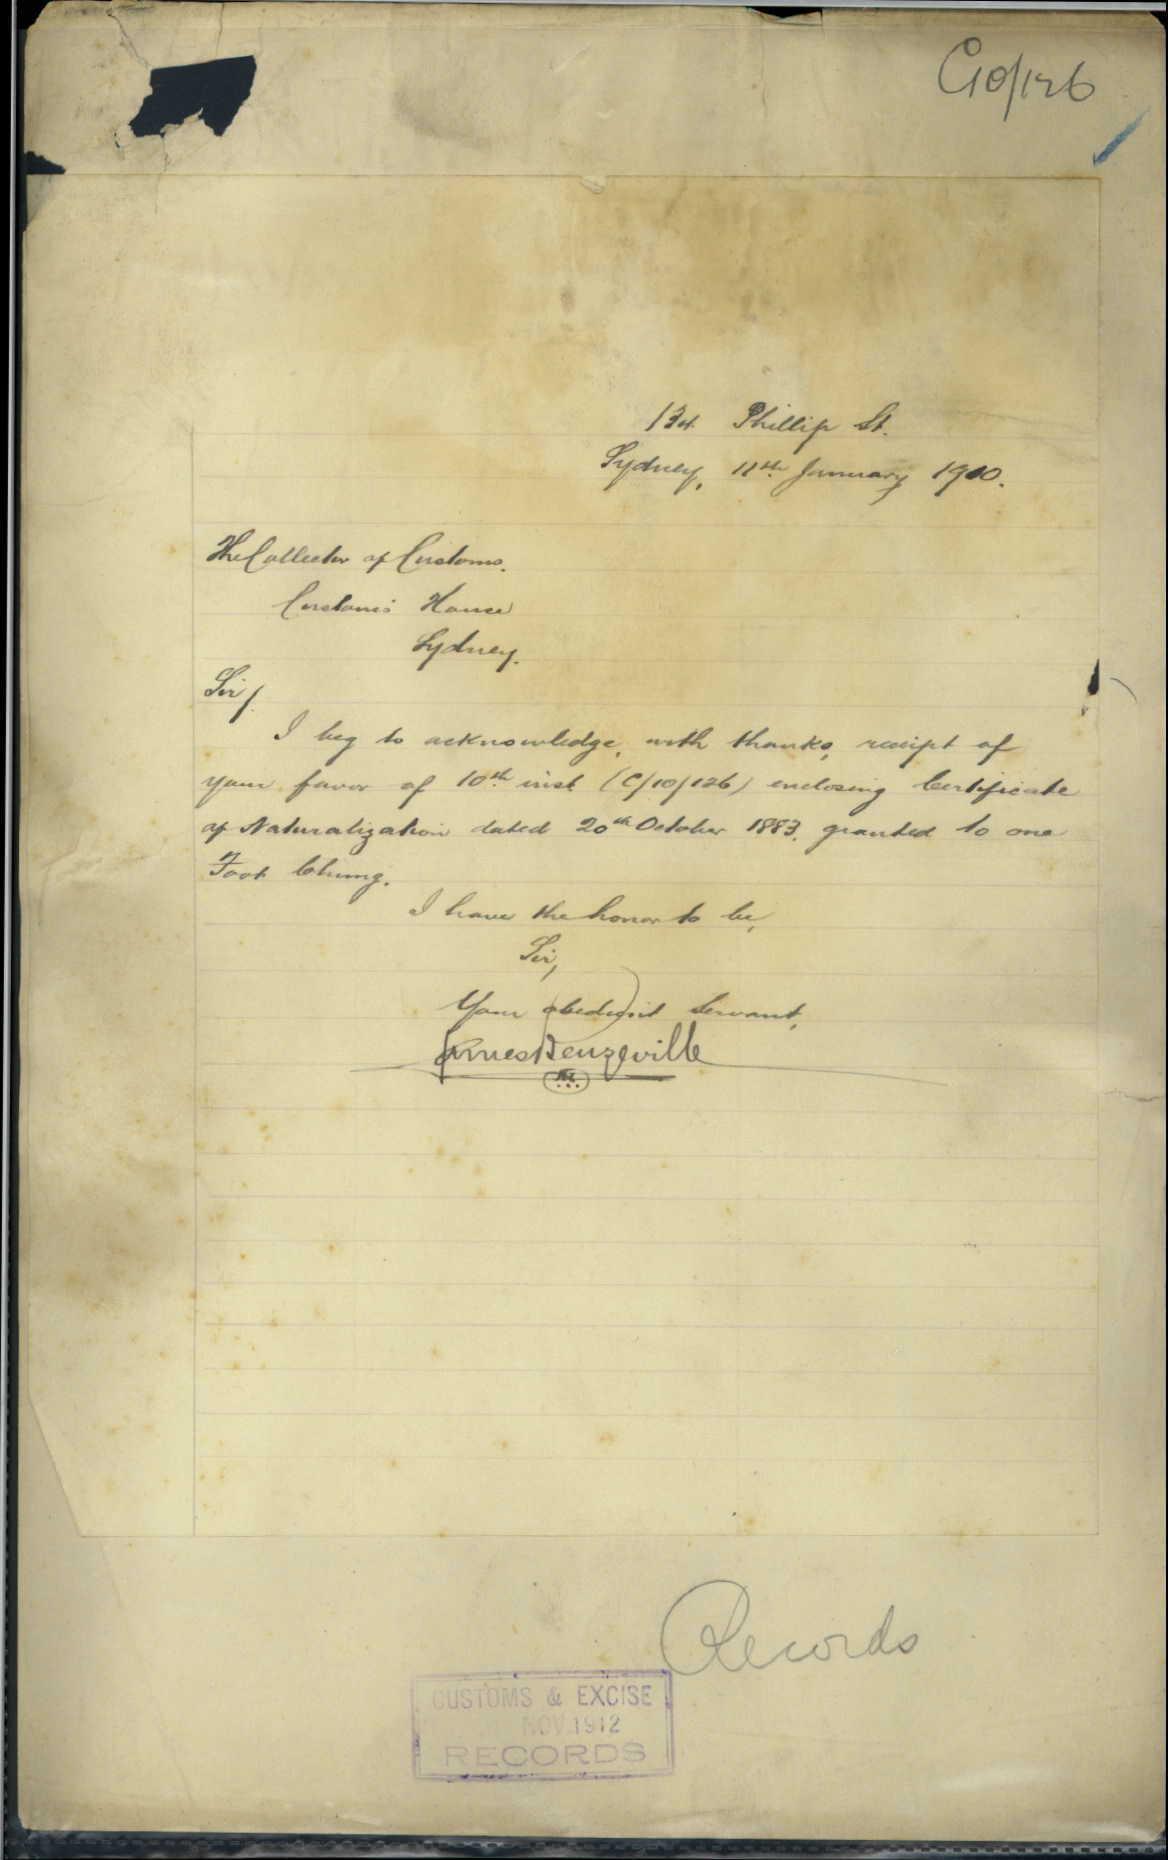 C10/126
134 Phillip St.
Sydney, 11th January 1910.
The Collector of Customs.
Customs House
Sydney.
Sir/.
I beg to acknowledge, with thanks, receipt of
your favor of 10th inst (C/10/126) enclosing Certificate
of Naturalization dated 20th October 1883. granted to one
Foot Chung.
I have the honor to be,
Sir,
Your obedient Servant,
James Beuzeville
Records
CUSTOMS & EXCISE
NOV. 1912
RECORDS